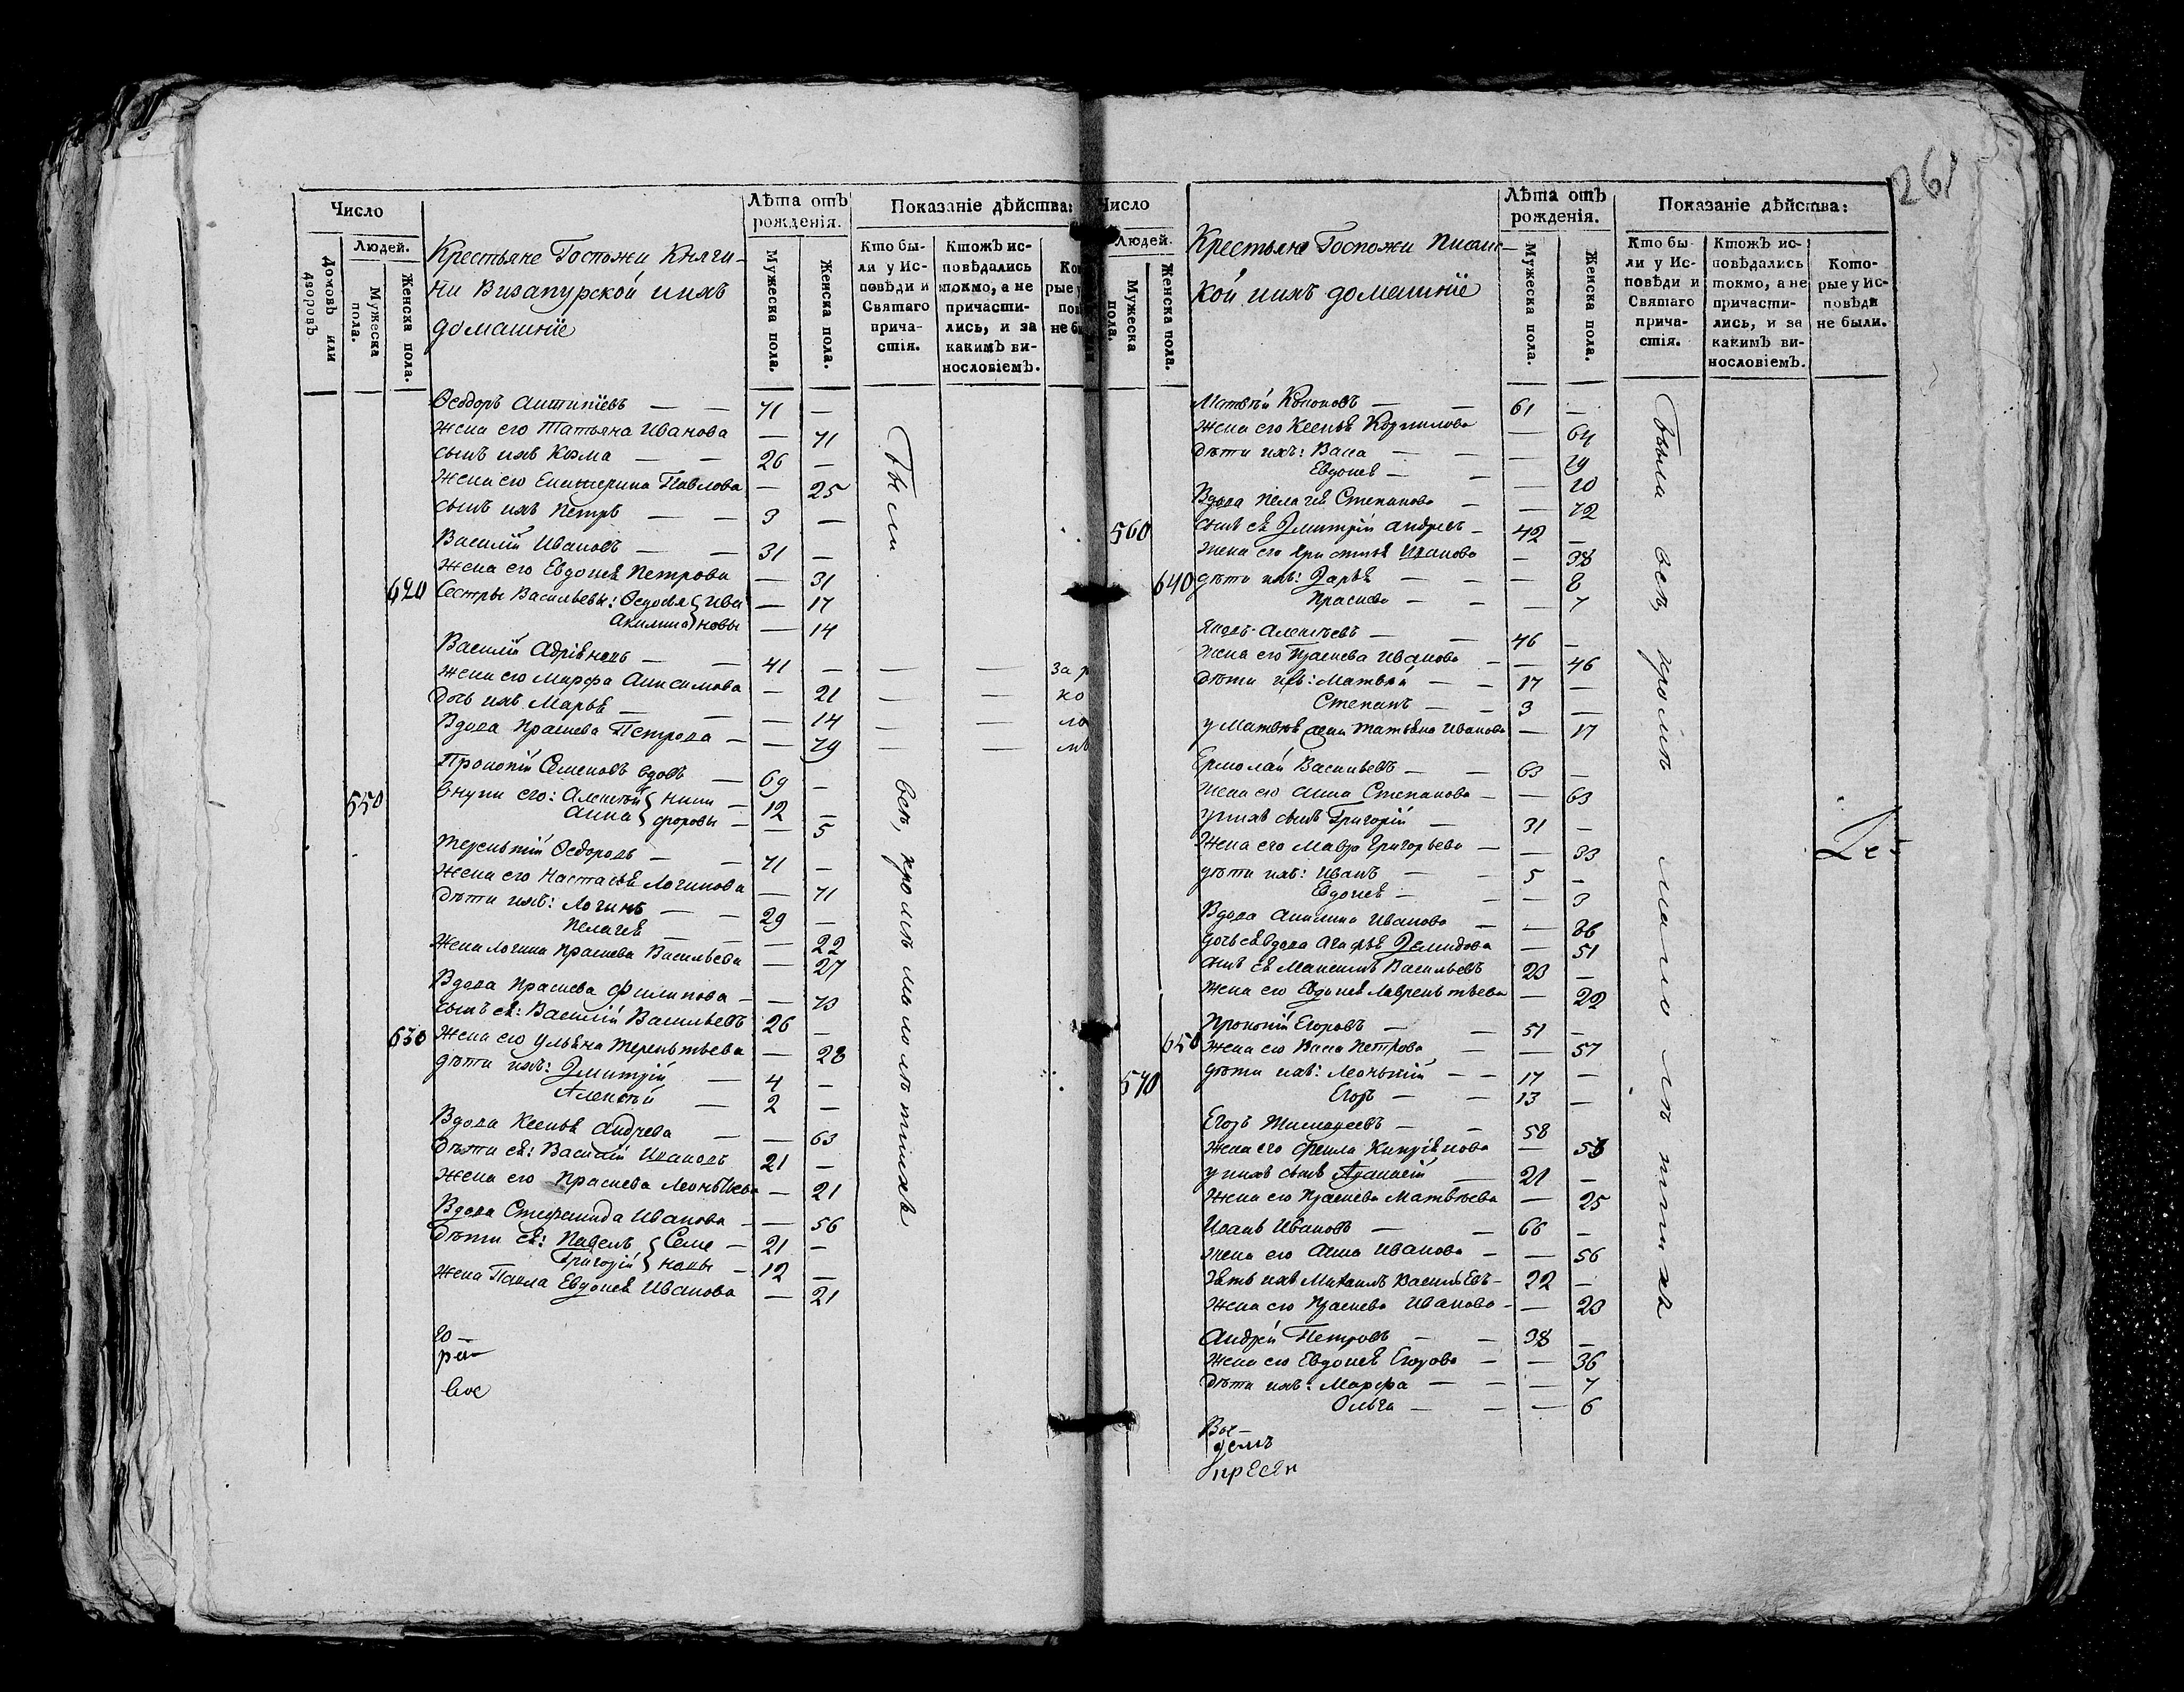 Число
Людей.
Домовъ или дворовъ
Мужеска пола.
Женска пола.
Крестьяне Госпожи Княги-
ни Визапурской и ихъ
домашніе
Лѣта отъ
рожденія.
Мужеска пола.
Женска пола.
Показаніе дѣйства:
Кто бы-
ли у Ис-
повѣди и
Святаго
прича-
стія.
Ктожъ ис-
повѣдались
токмо, а не
причасти-
лись, и за
какимъ ви-
нословіемъ.
Ѳеодоръ Антипіевъ — — 71 —
жена его Татьяна Иванова — 71
сынъ ихъ Козма — — 26 —
Жена его Екатерина Павлова — 25
сынъ ихъ Петръ — — 3 —
Василій Ивановъ — — 31 —
Жена его Евдокия Петрова — 31
620 Сестры Васильевы: Ѳедосья } Ива — 17
Акилина } новы — 14
Василій — — 41 — — —
жена его Марфа Анисимова — 21 — —
дочь ихъ Марья — — — 14 — —
Вдова Прасковья Петрова — — 79 — —
Прокопій Семеновъ вдовъ — 69 —
550 внуки его: Алексѣй } ники — 12 —
Анна } форовы — — 5
Терентій Ѳедоровъ — — 71 —
Жена его Настасья Логинова — 71
дѣти ихъ: Логинъ — — 29 —
Пелагея — — — 22
Жена Логина Прасковья Васильева — 27
Вдова Прасковья Филипова — — 70
сынъ ея: Василій Васильевъ 26 —
630 Жена его Ульяна Терентьева — 28
дѣти ихъ: Дмитрій — 4 —
Алексѣй — 2 —
Вдова Ксенья Андреева — — 63
Дѣти ея: Василій Ивановъ 21 —
Жена его Прасковья — 21
Вдова Стефанида Иванова — — 56
Дѣти ея: Павелъ } Семе — 21 —
Григорій } новы — 12 —
Жена Павла Евдокия Иванова — 21
Были всѣ, кромѣ малолѣтнихъ
Число
Людей.
Мужеска пола.
Женска пола.
261
Крестьяне Госпожи
кой и ихъ домашніе
Лѣта отъ
рожденія.
Мужеска пола.
Женска пола.
Показаніе дѣйства:
Кто бы-
ли у Ис-
повѣди и
Святаго
прича-
стія.
Ктожъ ис-
повѣдались
токмо, а не
причасти-
лись, и за
какимъ ви-
нословіемъ.
Кото-
рые у Ис-
повѣди
не были.
Матвѣй Кононовъ — — 61 —
жена его Ксенья Корнилова — 64
Дѣти ихъ: Васа — — —
Евдокия — — — 20
Вдова Пелагея Степанова — — 72
560 сынъ ея Дмитрій Андреевъ — 42 —
жена его Христинья Иванова — 38
640 дѣти ихъ: Дарья — — — 8
Прасковья — — — 7
Алексѣевъ — — 46 —
жена его Прасковья Иванова — — 46
дѣти ихъ: Матвѣй — — 17 —
Степанъ — — 3 —
у Матвѣя жена Татьяна Иванова — 17
Ермолай Васильевъ — — 63 —
Жена его Анна Степанова — — 63
у нихъ сынъ Григорій — 31 —
Жена его Мавра Григорьева — — 33
дѣти ихъ: Иванъ — — 5 —
Евдокия — — — 3
Вдова Акилина Иванова — — 86
дочь ея вдова Агафья Демидова — 51
сынъ ея Максимъ Васильевъ 23 —
Жена его Евдокия Лаврентьева — 22
Прокопій Егоровъ — — 51 —
650 жена его Васа Петрова — — 57
570 дѣти ихъ: Леонтій — — 17 —
Егоръ — — 13 —
Егоръ Тимофеевъ — — 58 —
жена его Фекла — 58
у нихъ сынъ Афанасій — 21 —
Жена его Прасковья Матвѣева — 25
Иванъ Ивановъ — — 66 —
жена его Анна Иванова — — 56
зять ихъ Михаилъ Васильевъ — 22 —
жена его Прасковья Иванова — — 23
Андрей Петровъ — — 38 —
жена его Евдокия Егорова — — 36
Дѣти ихъ: Марфа — — — 7
Ольга — — — 6
Были всѣ, кромѣ малолѣтнихъ